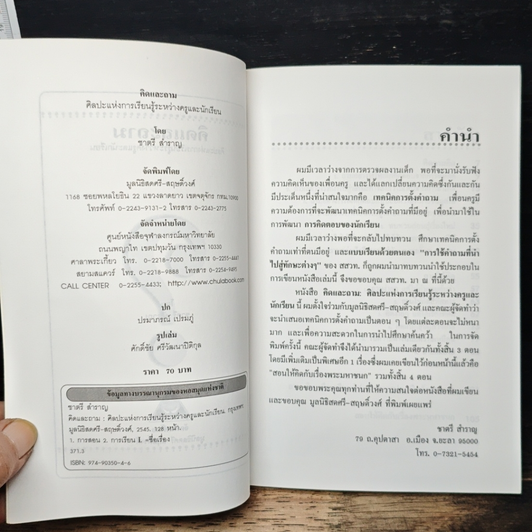 คิดและถาม
ศิลปะแห่งการเรียนรู้ระหว่างครูและนักเรียน
โดย
ชาตรี สำราญ
จัดพิมพ์โดย
มูลนิธิสดศรี-สฤษดิ์วงศ์
1168 ซอยพหลโยธิน 22 แขวงลาดยาว เขตจตุจักร กทม.10900
โทรศัพท์ 0-2243-9131-2 โทรสาร 0-2243-2775
จัดจำหน่ายโดย
ศูนย์หนังสือจุฬาลงกรณ์มหาวิทยาลัย
ถนนพญาไท เขตปทุมวัน กรุงเทพฯ 10330
ศาลาพระเกี้ยว โทร. 0-2218-7000 โทรสาร. 0-2255-4441
สยามสแควร์ โทร. 0-2218-9888 โทรสาร 0-2254-9495
CALL CENTER 0-2255-4433; http://www.chulabook.com
ปก
ปรมาภรณ์ เปรมภู่
รูปเล่ม
ศักดิ์ชัย ศรีวัฒนาปิติกุล
ราคา 70 บาท
ข้อมูลทางบรรณานุกรมของหอสมุดแห่งชาติ
ชาตรี สำราญ
คิดและถาม : ศิลปะแห่งการเรียนรู้ระหว่างครูและนักเรียน. กรุงเทพฯ
มูลนิธิสดศรี-สฤษดิ์วงศ์, 2545. 128 หน้า.
1. การสอน 2. การเรียน I. -ชื่อเรื่อง
371.3
ISBN: 974-90350-4-6
คำนำ
ผมมีเวลาว่างจากการตรวจผลงานเด็ก พอที่จะมานั่งรับฟัง
ความคิดเห็นของเพื่อนครู และได้แลกเปลี่ยนความคิดซึ่งกันและกัน
มีประเด็นหนึ่งที่น่าสนใจมากคือ เทคนิคการตั้งคำถาม เพื่อนครูมี
ความต้องการที่จะพัฒนาเทคนิคการตั้งคำถามที่มีอยู่ เพื่อนำมาใช้ใน
การพัฒนา การคิดตอบของนักเรียน
ผมมีเวลาว่างพอที่จะกลับไปทบทวน ศึกษาเทคนิคการตั้ง
คำถามเท่าที่ตนมีอยู่ และแบบเรียนด้วยตนเอง "การใช้คำถามที่นำ
ไปสู่ทักษะต่างๆ" ของ สสวท. ก็ถูกผมนำมาทบทวนนำใช้ประกอบใน
การเขียนหนังสือเล่มนี้ จึงขอขอบคุณ สสวท. มา ณ ที่นี้ด้วย
หนังสือ คิดและถาม: ศิลปะแห่งการเรียนรู้ระหว่างครูและ
นักเรียน นี้ ผมตั้งใจร่วมกับมูลนิธิสดศรี-สฤษดิ์วงศ์ และคณะผู้จัดทำว่า
จะนำเสนอเทคนิคการตั้งคำถามเป็นตอน ๆ โดยแต่ละตอนจะไม่หนา
มาก และเพื่อความสะดวกในการนำไปศึกษาค้นคว้า ในการจัด
พิมพ์ครั้งนี้ คณะผู้จัดทำจึงได้นำมารวมเป็นเล่มเดียวกันทั้งสิ้น 3 ตอน
โดยมีเพิ่มเติมเป็นพิเศษอีก 1 เรื่องซึ่งผมเคยเขียนไว้ก่อนหน้านี้แล้วคือ
"สอนให้คิดกับเรื่องพระมหาชนก" รวมทั้งสิ้น 4 ตอน
ขอขอบพระคุณทุกท่านที่ให้ความสนใจต่อหนังสือที่ผมเขียน
และขอบคุณ มูลนิธิสดศรี-สฤษดิ์วงศ์ ที่พิมพ์เผยแพร่
ชาตรี สำราญ
79 ถ.อุปดาสา อ.เมือง จ.ยะลา 95000
โทร. 0-7321-5454